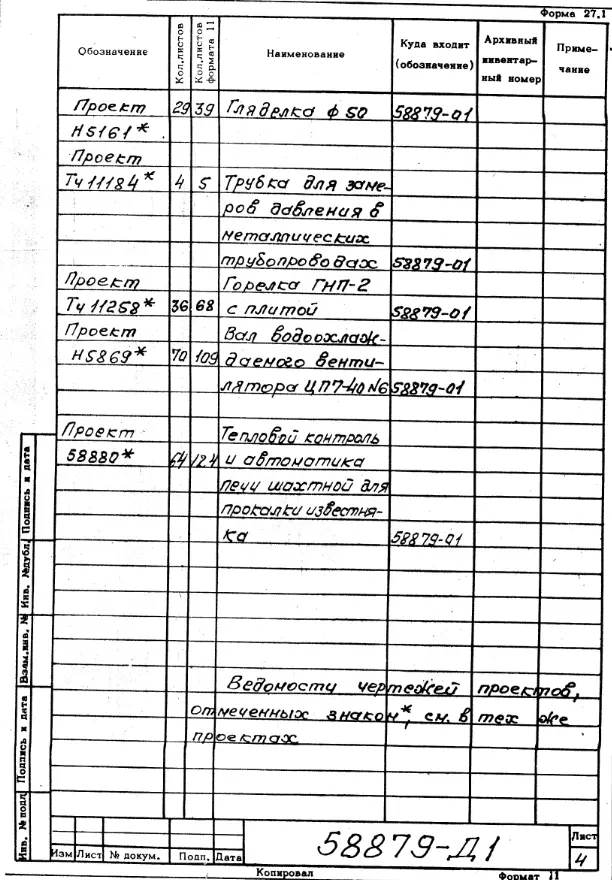 Форма 27.1
Обозначение Кол.листов Кол.листов формата 11 Наименование Куда входит (обозначение) Архивный инвентар-ный номер Приме-чание
Проект 29 39 Гляделка ф 50 58879-01
Н5161*
Проект
Тч 11184* 4 5 Трубка для заме-
ров давления в
металлических
трубопроводах 58879-01
Проект Горелка ГНП-2
Тч 11258* 36 68 с плитой 58879-01
Проект Вал водоохлаж-
Н5869* 70 109 даемого венти-
лятора ЦП7-40 №6 58879-01
Проект Тепловой контроль
58880* 64 124 и автоматика
печи шахтной для
прокалки известня-
ка 58879-01
Ведомости чертежей проектов,
отмеченных знаком*, см. в тех же
проектах
Инв. № подл. Подпись и дата Взам.инв. № Инв. №дубл. Подпись и дата
58879-Д1
Лист
4
Изм Лист № докум. Подп. Дата
Копировал Формат 11